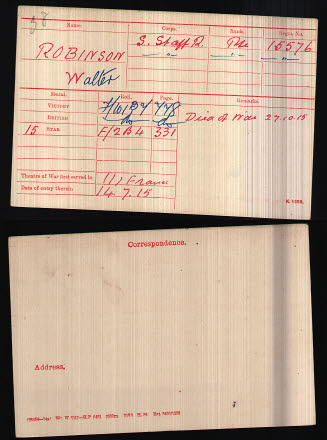 Name. Corps. Rank. Regtl. No.
ROBINSON S. Staff. R. Pte 15576
Walter —"— —"— "
Medal. Roll. Page. Remarks.
VICTORY
BRITISH do do Died of Wds 27.10.15
15 STAR F/2B4 331
Theatre of War first served in (1) France
Date of entry therein 14.7.15
K. 1380.
Correspondence.
Address.